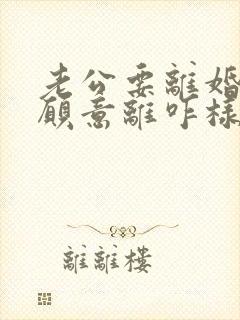 老公要離婚
願意離咋樣
離離樓